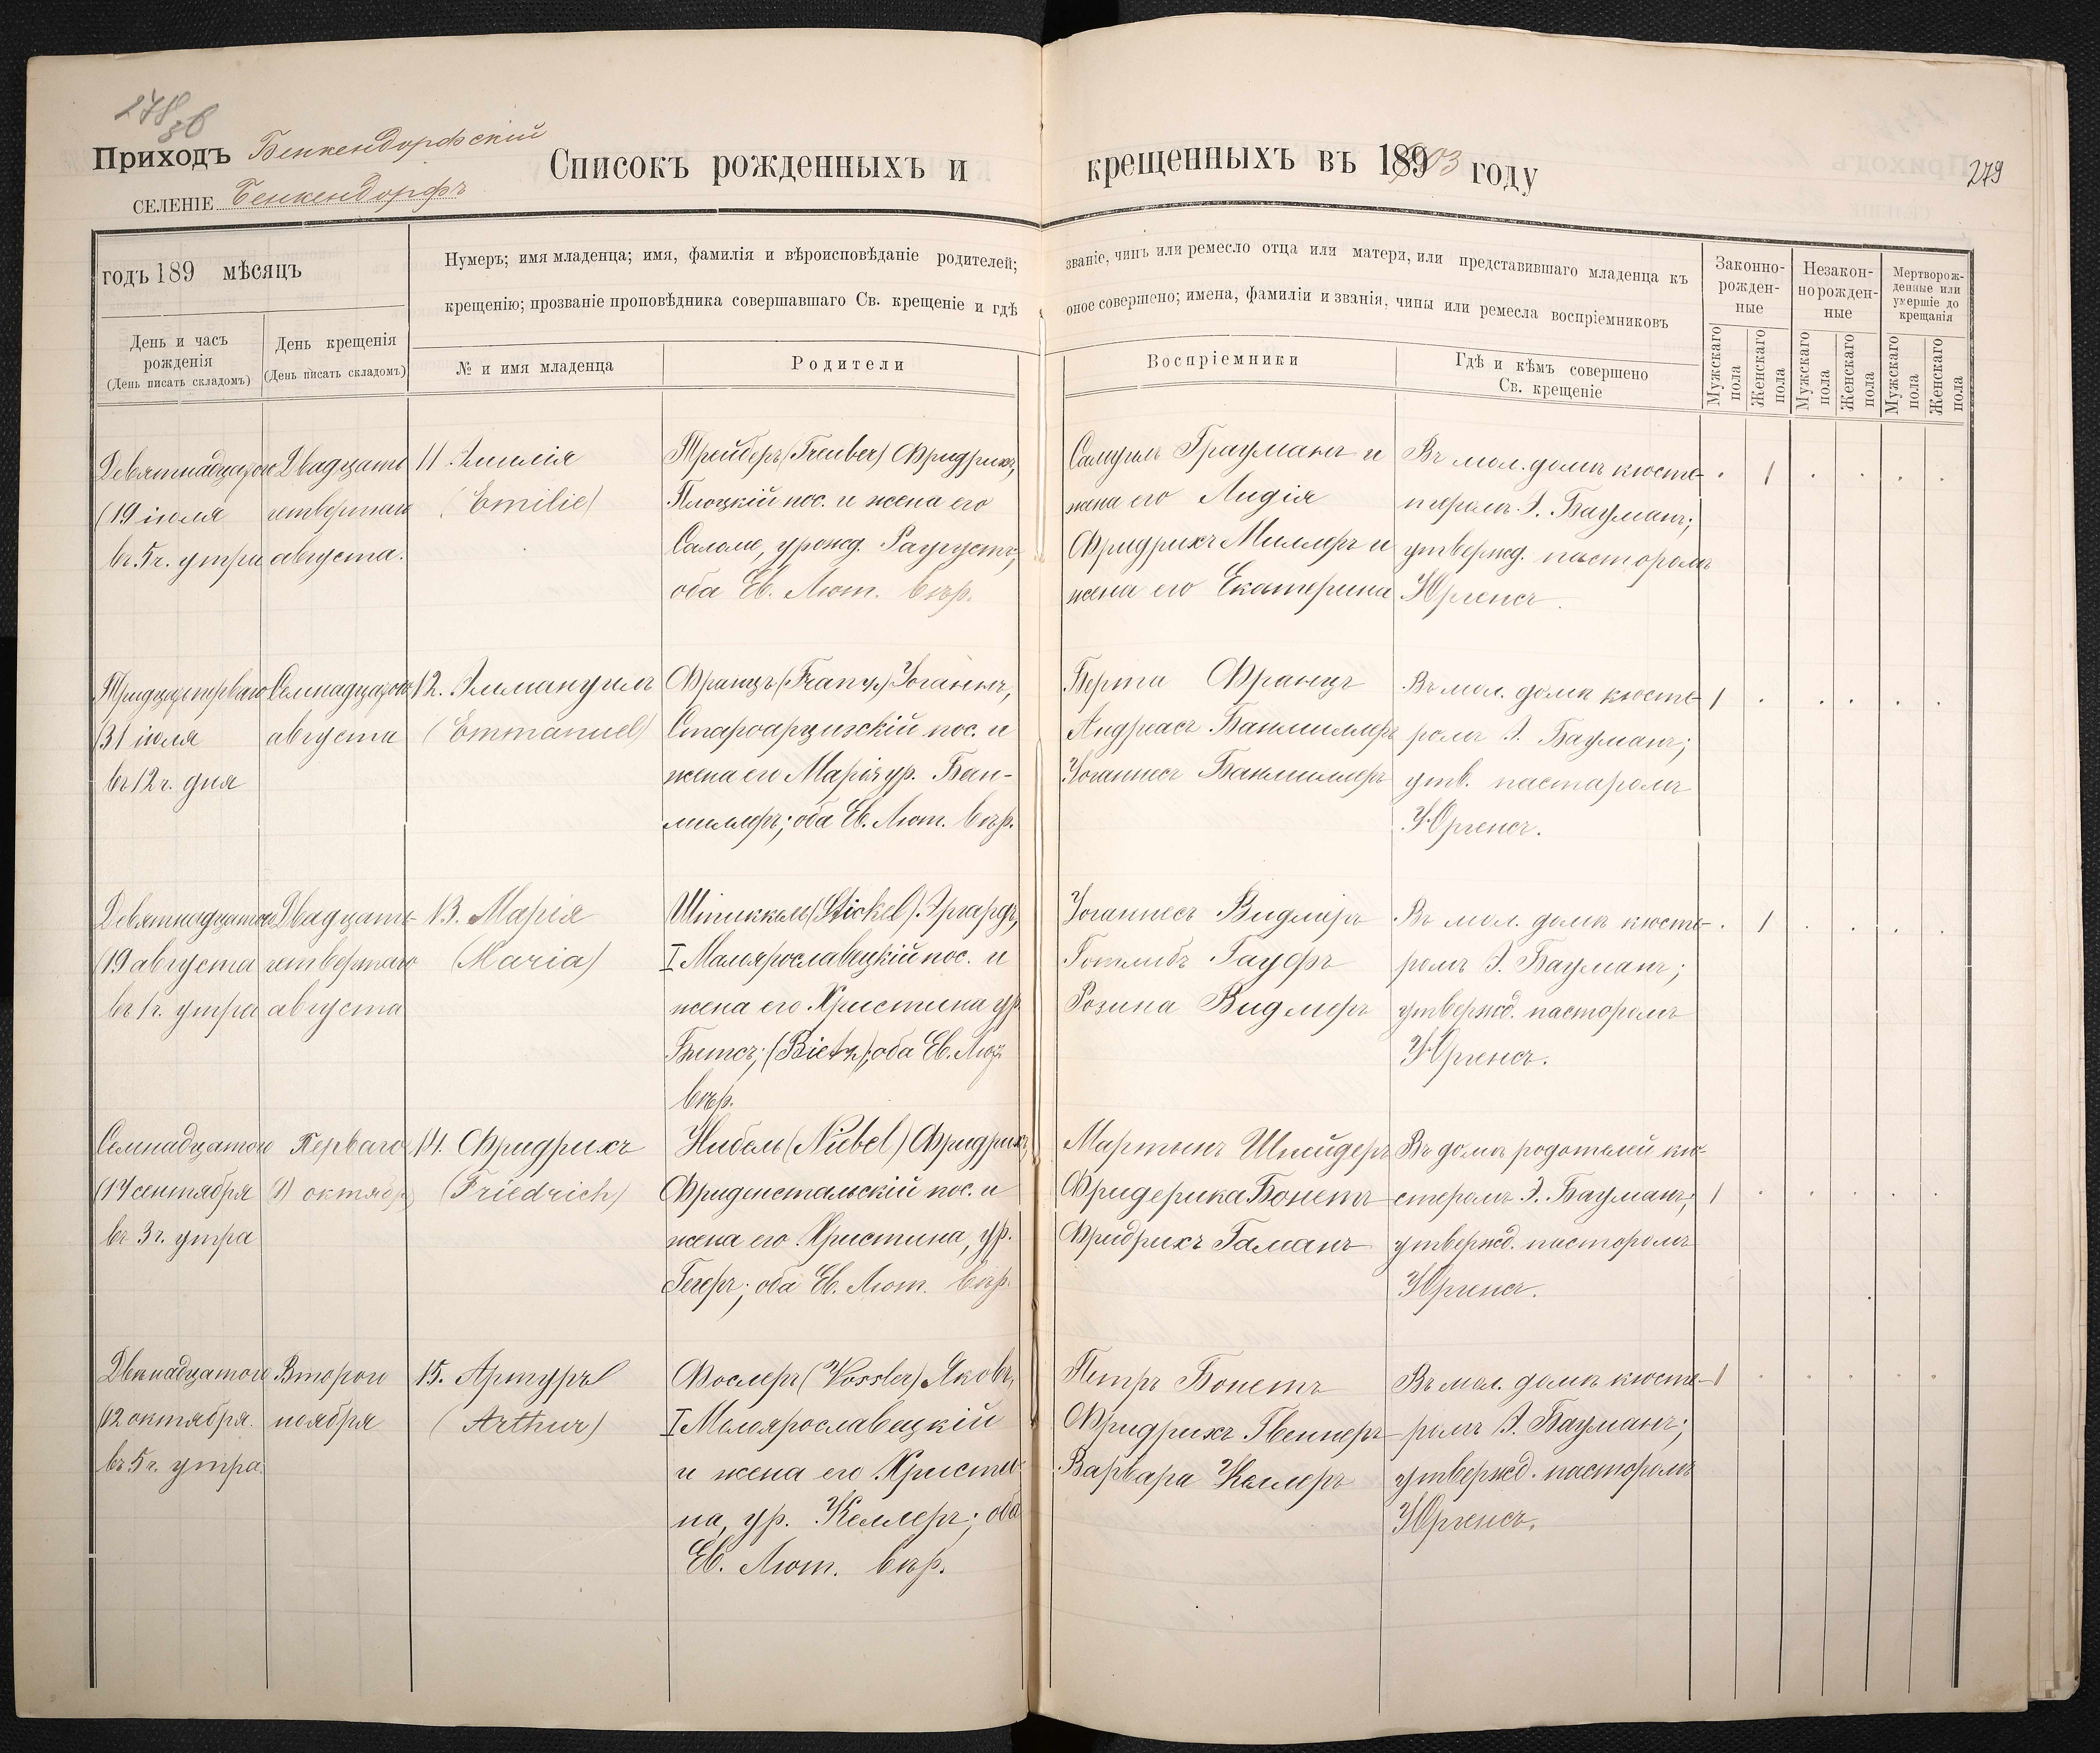 278
об
Приходъ Бенкендорфскій
селеніе Бенкендорфъ
Списокъ рожденныхъ и крещенныхъ въ 1903 году
279
годъ 189 мѣсяцъ
Нумеръ; имя младенца; имя, фамилія и вѣроисповѣданіе родителей; званіе, чинъ или ремесло отца или матери, или представившаго младенца къ
крещенію; прозваніе проповѣдника совершавшаго Св. крещеніе и гдѣ оное совершено; имена, фамиліи и званія, чины или ремесла воспріемниковъ
День и часъ
рожденія
(День писать складомъ)
День крещенія
(День писать складомъ)
№ и имя младенца
Родители
Воспріемники
Гдѣ и кѣмъ совершено
Св. крещеніе
Законно-
рожден-
ные
Незакон-
норожден-
ные
Мертворож-
денные или
умершіе до
крещанія
Мужскаго
пола
Женскаго
пола
Мужскаго
пола
Женскаго
пола
Мужскаго
пола
Женскаго
пола
Девятнадцатого
(19 іюля
въ 5 ч. утра
Двадцать
четвертаго
августа.
11. Эмилія
(Emilie)
Трейберъ (Treuber) Фридрихъ,
Плоцкій пос. и жена его
Саломе, урожд. Раугустъ;
оба Ев. Лют. вѣр.
Самуилъ Грауманъ и
жена его Лидія
Фридрихъ Миллеръ и
жена его Екатерина
Въ мол. домѣ кюсте-
теромъ Э. Бауманъ;
утвержд. пасторомъ
Юргенсъ.
1
31 іюля
въ 12 ч. дня
Семнадцатого
августа
12. Эммануилъ
(Emmanuel)
Францъ (Franz) Іоганнъ,
Староарцизскій пос. и
жена его Марія ур. Бак-
миллеръ; оба Ев. Лют. вѣр.
Берта Францъ
Андреасъ Бакмиллеръ
Іоганнесъ Бакмиллеръ
Въ мол. домѣ кюсте-
ромъ Э. Бауманъ;
утв. пасторомъ
Юргенсъ.
1
Девятнадцатого
(19 августа
въ 1 ч. утра
Двадцать-
четвертаго
августа
13. Марія
(Maria)
Штиккель (Stickel) Эргардъ,
I Малоярославецкій пос. и
жена его Христина ур.
Битсъ; (Bietz); оба Ев. Лют.
вѣр.
Іоганнесъ Видмеръ
Готлибъ Гауфъ
Розина Видмеръ
Въ мол. домѣ кюсте-
ромъ Э. Бауманъ;
утвержд. пасторомъ
Юргенсъ.
1
Семнадцатого
(17 сентября
въ 3 ч. утра
Перваго
(1) октября
14. Фридрихъ
(Friedrich)
Нибель (Niebel) Фридрихъ,
Фриденстальскій пос. и
жена его Христина, ур.
Гегеръ; оба Ев. Лют. вѣр.
Мартынъ Шнейдеръ
Фридерика Бонетъ
Фридрихъ Гаманъ
Въ домѣ родителей кю-
стеромъ Э. Бауманъ;
утвержд. пасторомъ
Юргенсъ.
1
Двѣнадцатого
(12 октября.
въ 5 ч. утра.
Второго
ноября
15. Артуръ
(Arthur)
Фослеръ (Vossler) Яковъ,
I Малоярославецкій
и жена его Христи-
на, ур. Келлеръ; оба
Ев. Лют. вѣр.
Петръ Бонетъ
Фридрихъ Гвеннеръ
Варвара Келлеръ
Въ мол. домѣ кюсте-
ромъ Э. Бауманъ;
утвержд. пасторомъ
Юргенсъ.
1